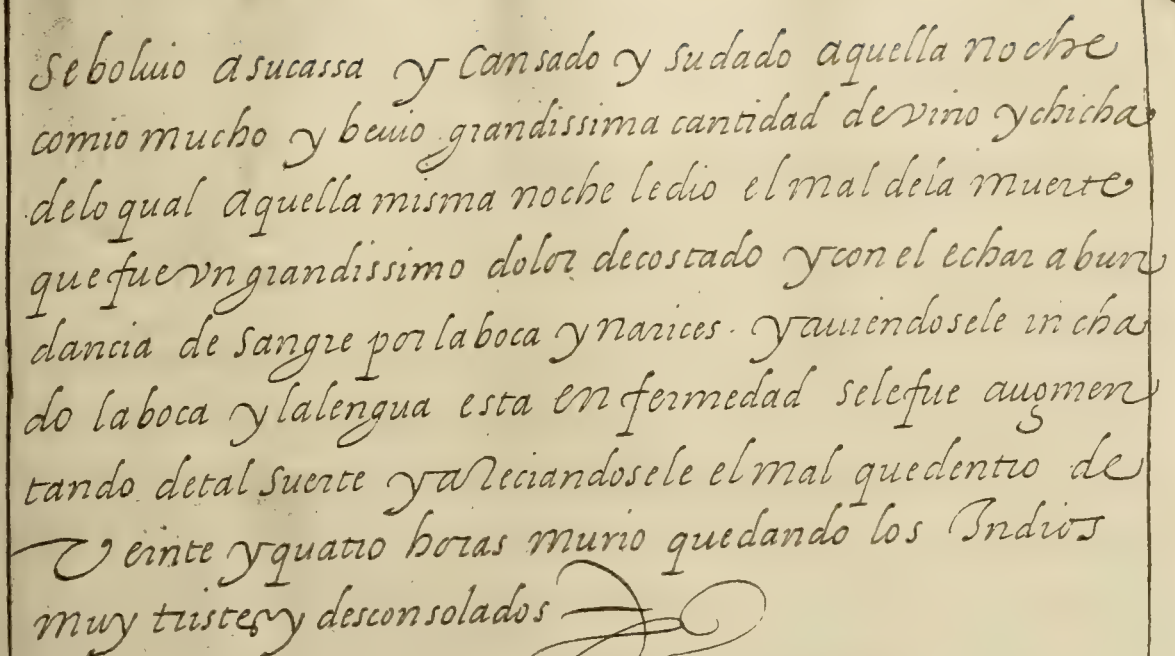 Se boluio a su cassa y Cansado y Sudado aquella noche
comio mucho y beuio grandissima cantidad de vino y chicha
de lo qual aquella misma noche le dio el mal de la muerte
que fue vn grandissimo dolor de costado y con el echar abun
dancia de sangre por la boca y narices. y auiendosele incha
do la boca y la lengua esta enfermedad se le fue augmen
tando de tal suerte y arreciandosele el mal que dentro de
Veinte y quatro horas murio quedando los Indios
muy tristes y desconsolados